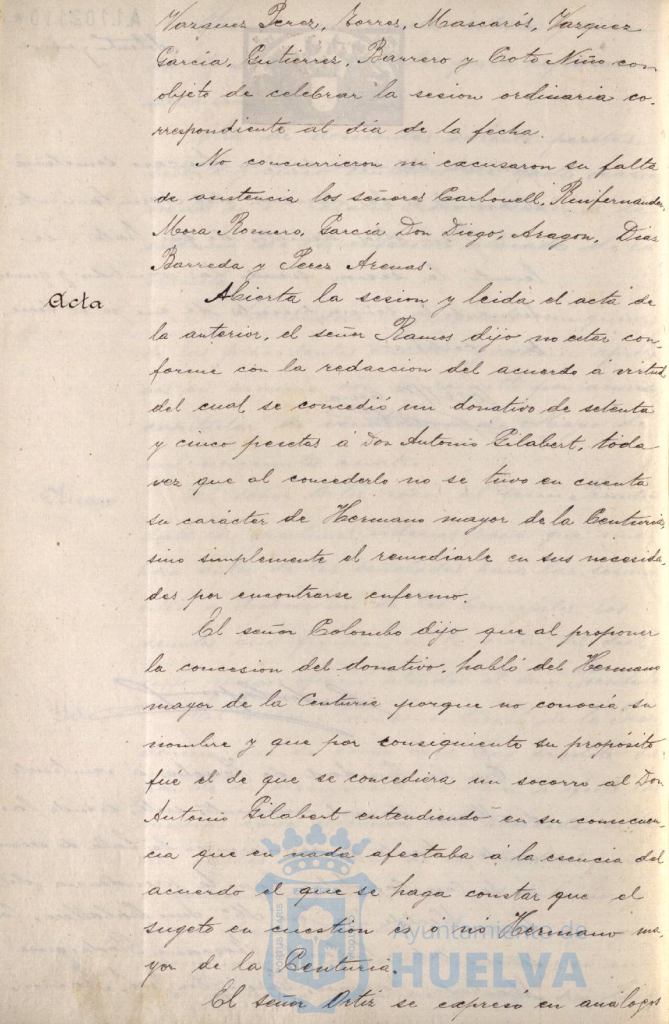 Vazquez Perez, Torres, Mascarós, Vazquez
Garcia, Gutierrez, Barrero y Coto Niño con
objeto de celebrar la sesion ordinaria co-
rrespondiente al dia de la fecha.
No concurrieron ni excusaron su falta
de asistencia los señores Carbonell, Ruifernandez,
Mora Romero, Garcia Don Diego, Aragon, Diaz
Barreda y Perez Arenas.
Acta
Abierta la sesion y leida el acta de
la anterior, el señor Ramos dijo no estar con-
forme con la redaccion del acuerdo á virtud
del cual se concedió un donativo de setenta
y cinco pesetas á Don Antonio Gilabert, toda
vez que al concederlo no se tuvo en cuenta
su carácter de Hermano mayor de la Centuria,
sino simplemente el remediarle en sus necesida-
des por encontrarse enfermo.
El señor Colombo dijo que al proponer
la concesion del donativo, habló del Hermano
mayor de la Centuria porque no conocía su
nombre y que por consiguiente su propósito
fué el de que se concediera un socorro al Don
Antonio Gilabert entendiendo en su consecuen-
cia que en nada afectaba á la esencia del
acuerdo el que se haga constar que el
sugeto en cuestion és ó nó Hermano ma-
yor de la Centuria.
El señor Ortiz se expresó en análogos
Ayuntamiento de
HUELVA